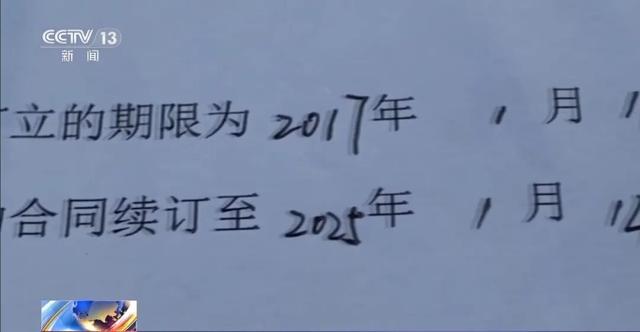 CCTV 13
新闻
订立的期限为2017年 1月1
合同续订至2025年 1月12